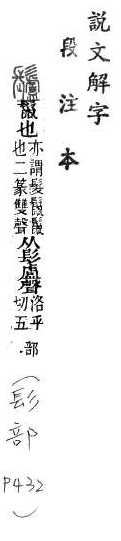 說文解字
段注本
鬣也亦謂髮鬣鬣也二篆雙聲从髟盧聲洛乎切五部
(髟部 P432)